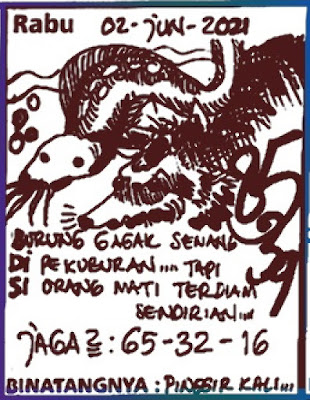 Rabu 02-JUN-2021
BURUNG GAGAK SENANG
DI PEKUBURAN.... TAPI
SI ORANG MATI TERDIAM
SENDIRIAN...
JAGA2 : 65-32-16
BINATANGNYA : PINGGIR KALI...